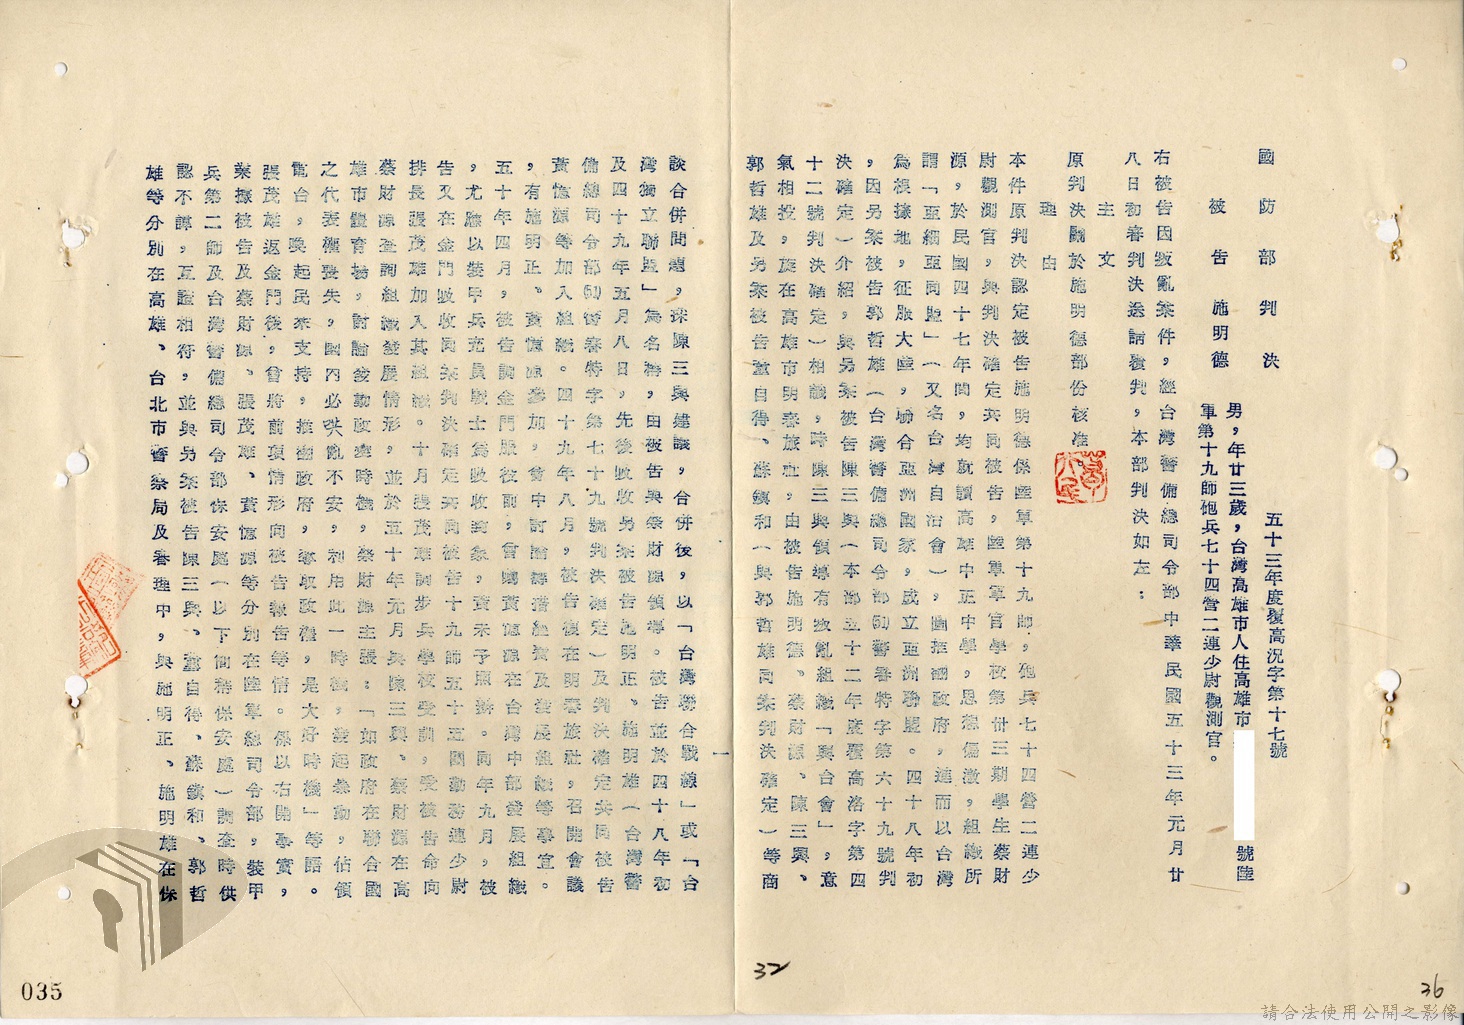 國防部判決
五十三年度覆高況字第十七號
被告施明德
男，年廿三歲，台灣高雄市人住高雄市 號陸
軍第十九師砲兵七十四營二連少尉觀測官。
右被告因叛亂案件，經台灣警備總司令部中華民國五十三年元月廿
八日初審判決送請覆判，本部判決如左：
主文
原判決關於施明德部份核准
理由
本件原判決認定被告施明德係陸軍第十九師，砲兵七十四營二連少
尉觀測官，與判決確定共同被告，陸軍軍官學校第卅三期學生蔡財
源，於民國四十七年間，均就讀高雄中正中學，思想偏激，組織所
謂「亞細亞同盟」（又名台灣自治會），圖推國政府，連而以台灣
為根據地，征服大陸，聯合亞洲國家，成立亞洲聯盟。四十八年初
，因另案被告郭哲雄（台灣警備總司令部(51)警審特字第六十九號判
決確定）介紹，與另案被告陳三興（本部五十二年度覆高洛字第四
十二號判決確定）相識，時陳三興領導有叛亂組織「興台會」，意
氣相投，旋在高雄市明春旅社，由被告施明德、蔡財源、陳三興、
郭哲雄及另案被告董自得、蘇鎮和（與郭哲雄同案判決確定）等商
談合併問題，採陳三興建議，合併後，以「台灣聯合戰線」或「台
灣獨立聯盟」為名稱，由被告與蔡財源領導。被告並於四十八年初
及四十九年五月八日，先後吸收另案被告施明正、施明雄（台灣警
備總司令部(51)警審特字第七十九號判決確定）及判決確定共同被告
黃憶源等加入組織。四十九年八月，被告復在明春旅社，召開會議
，有施明正、黃憶源參加，會中討論籌措經費及發展組織等事宜。
五十年四月，被告調金門服役前，曾囑黃憶源在台灣中部發展組織
，尤應以裝甲兵充員戰士為吸收對象，黃未予照辦。同年九月，被
告又在金門吸收同案判決確定共同被告十九師五十五團勤務連少尉
排長張茂雄加入其組織。十月張茂雄調步兵學校受訓，受被告命向
蔡財源查詢組織發展情形，並於五十年元月與陳三興、蔡財源在高
雄市體育場，討論發動叛變時機，蔡財源主張：「如政府在聯合國
之代表權喪失，國內必哄亂不安，利用此一時機，發起暴動，佔領
電台，喚起民衆支持，推翻政府，奪取政權，是大好時機」等語。
張茂雄返金門後，曾將前項情形向被告報告等情。係以右開事實，
業據被告及蔡財源、張茂雄、黃憶源等分別在陸軍總司令部，裝甲
兵第二師及台灣警備總司令部保安處（以下簡稱保安處）調查時供
認不諱，互證相符，並與另案被告陳三興、董自得、蘇鎮和、郭哲
雄等分別在高雄、台北市警察局及審理中，與施明正、施明雄在保
一
32
36
035
請合法使用公開之影像